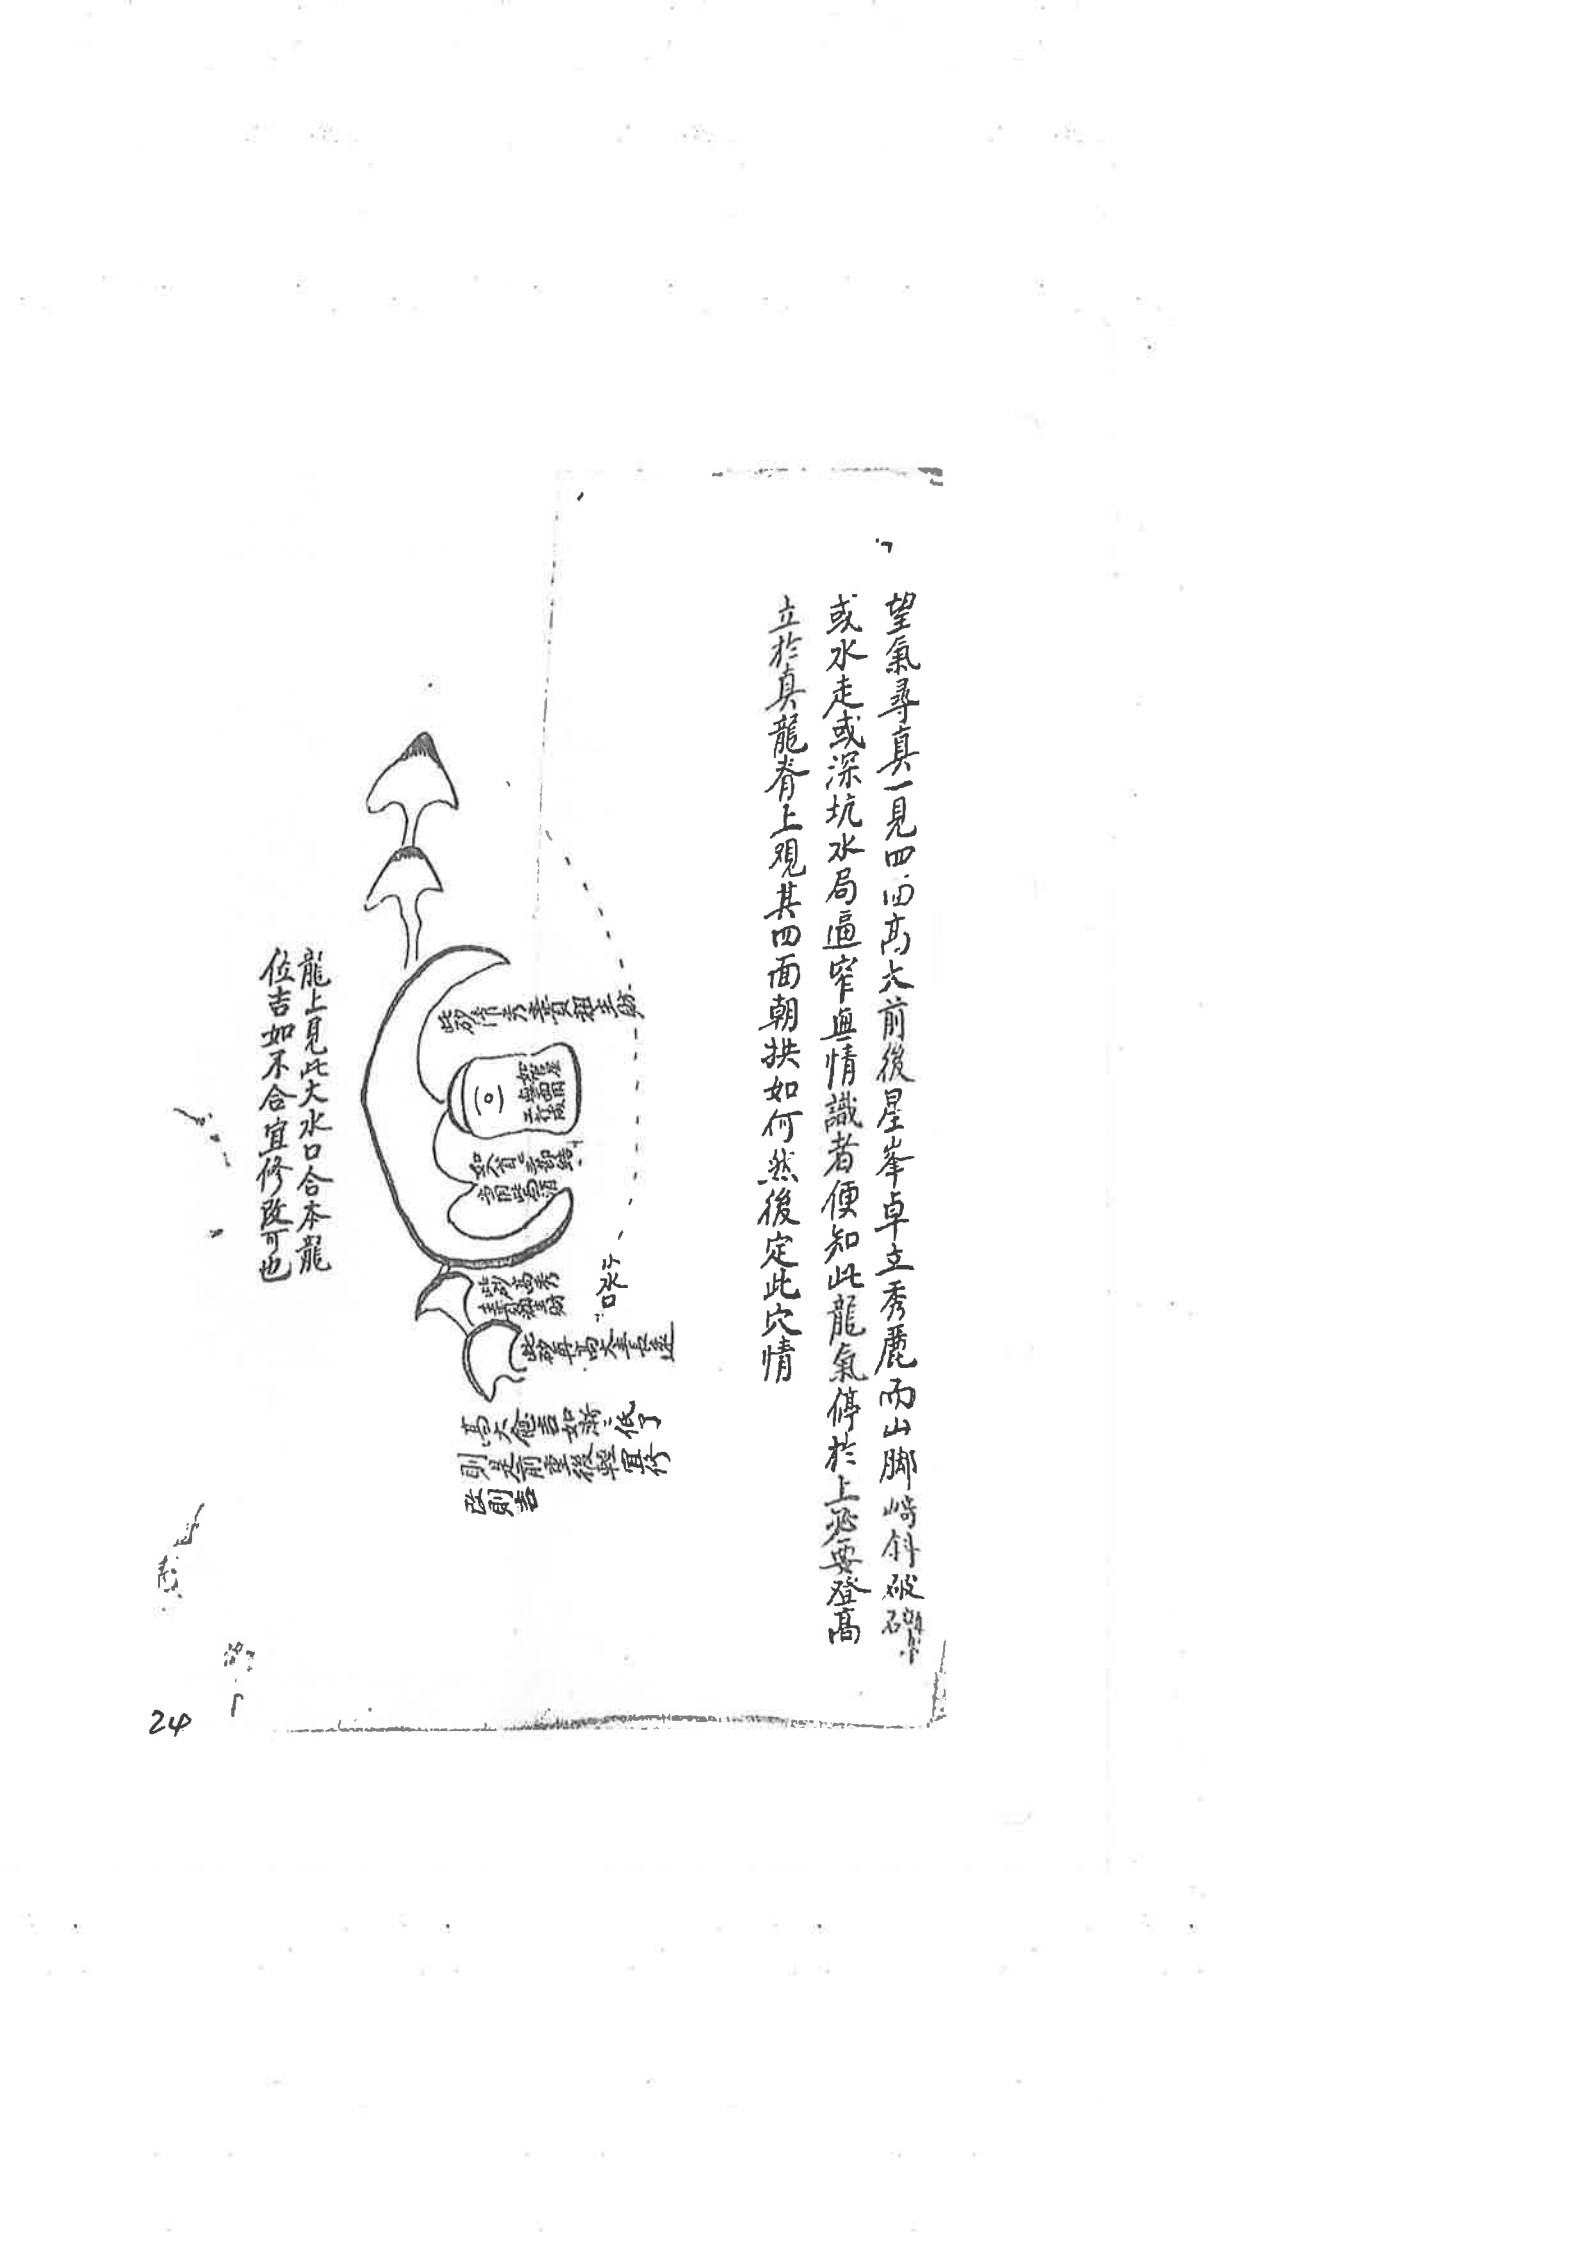 望氣尋真一見四面高大前後星峯卓立秀麗而山脚崎斜破
或水走或深坑水局逼窄無情識者便知此龍氣停於上必要登高
立於真龍脊上觀其四面朝拱如何然後定此穴情
此砂清秀貴
此砂高秀
此砂再高大
高大愈吉如漸低了
則是前重後輕宜修
改則吉
水口
龍上見此大水口合本龍
位吉如不合宜修改可也
24